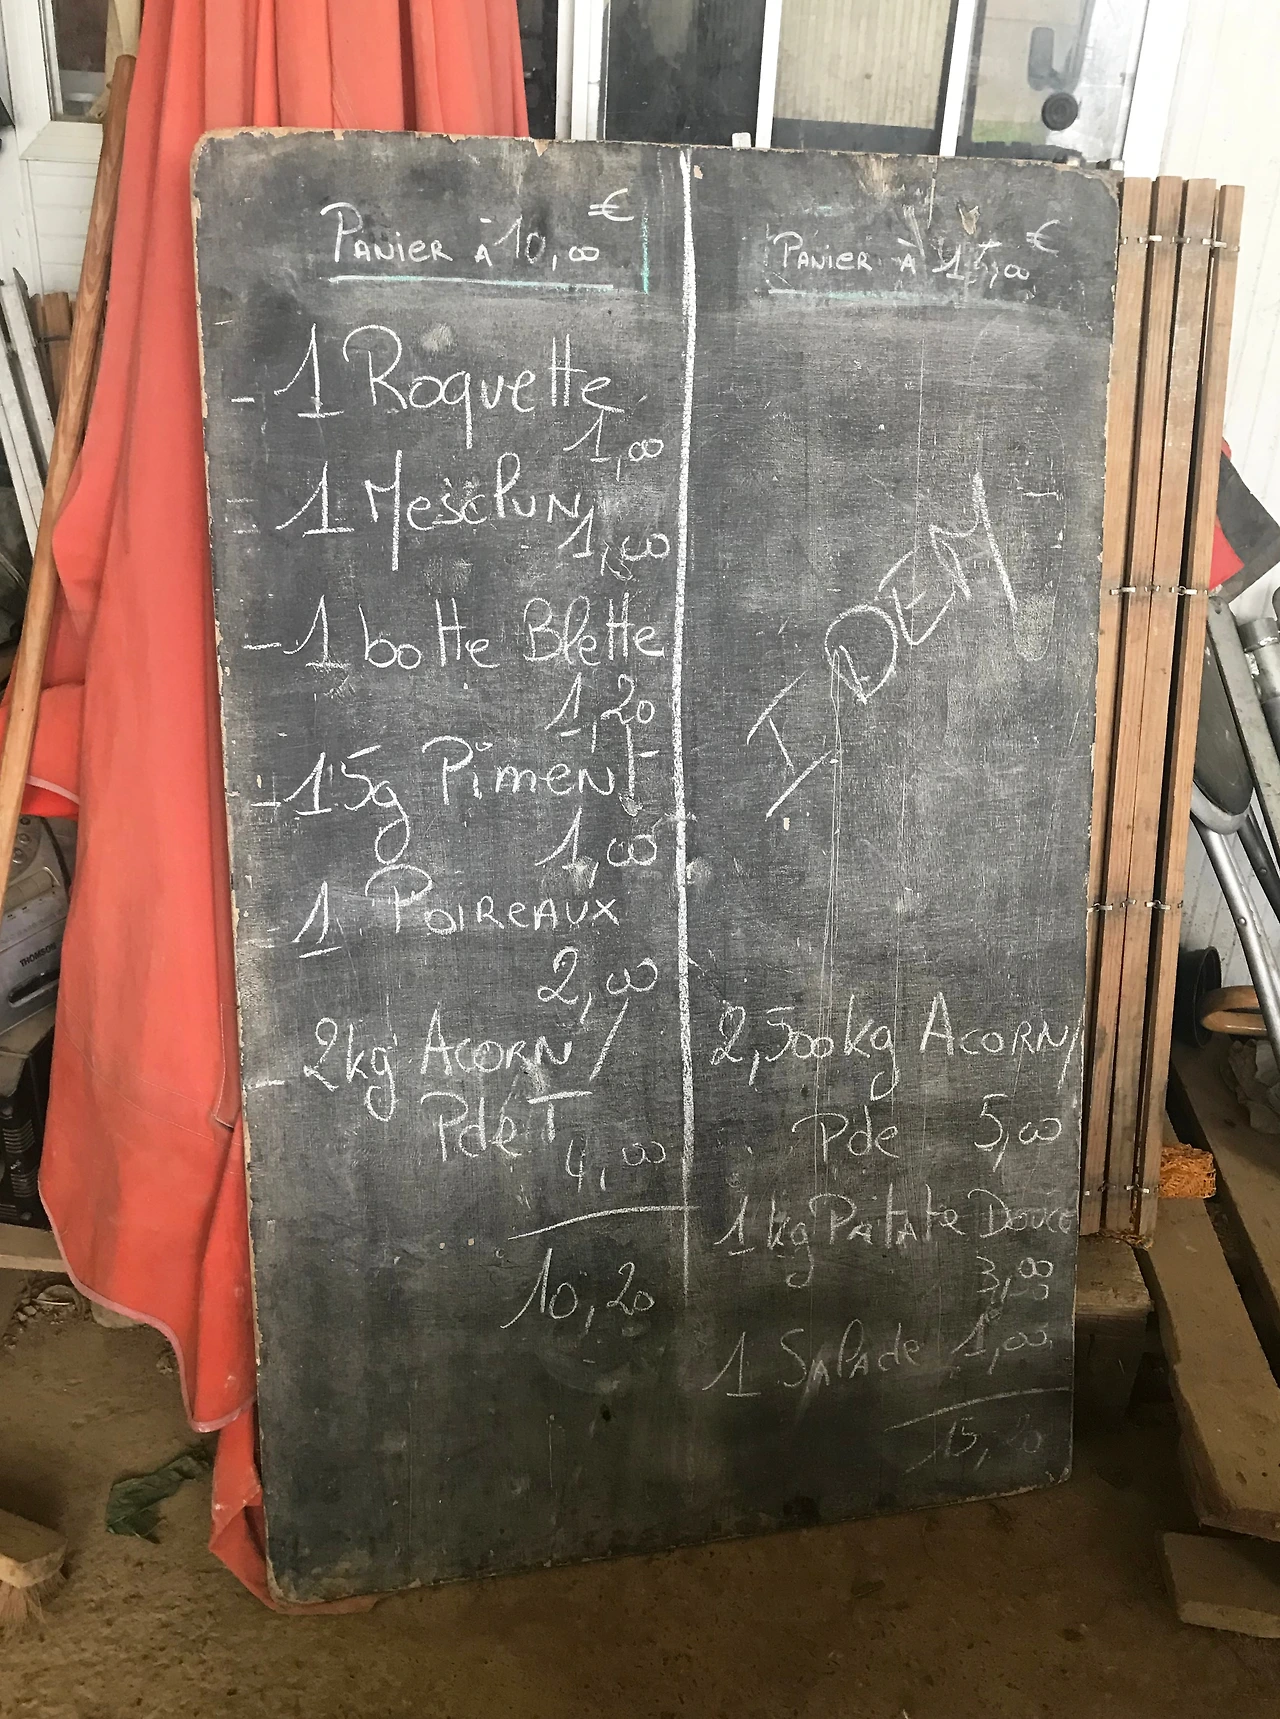 Panier à 10,00 €
- 1 Roquette
1,00
- 1 Mesclun
1,00
- 1 botte Blette
1,20
- 15g Piment
1,00
1 Poireaux
2,00
- 2kg Acorn /
Pde T
4,00
10,20
Panier à 15,00 €
IDEM
2,500kg Acorn /
Pde 5,00
1 kg Patate Douce
3,00
1 Salade 1,00
15,20
THOMSON